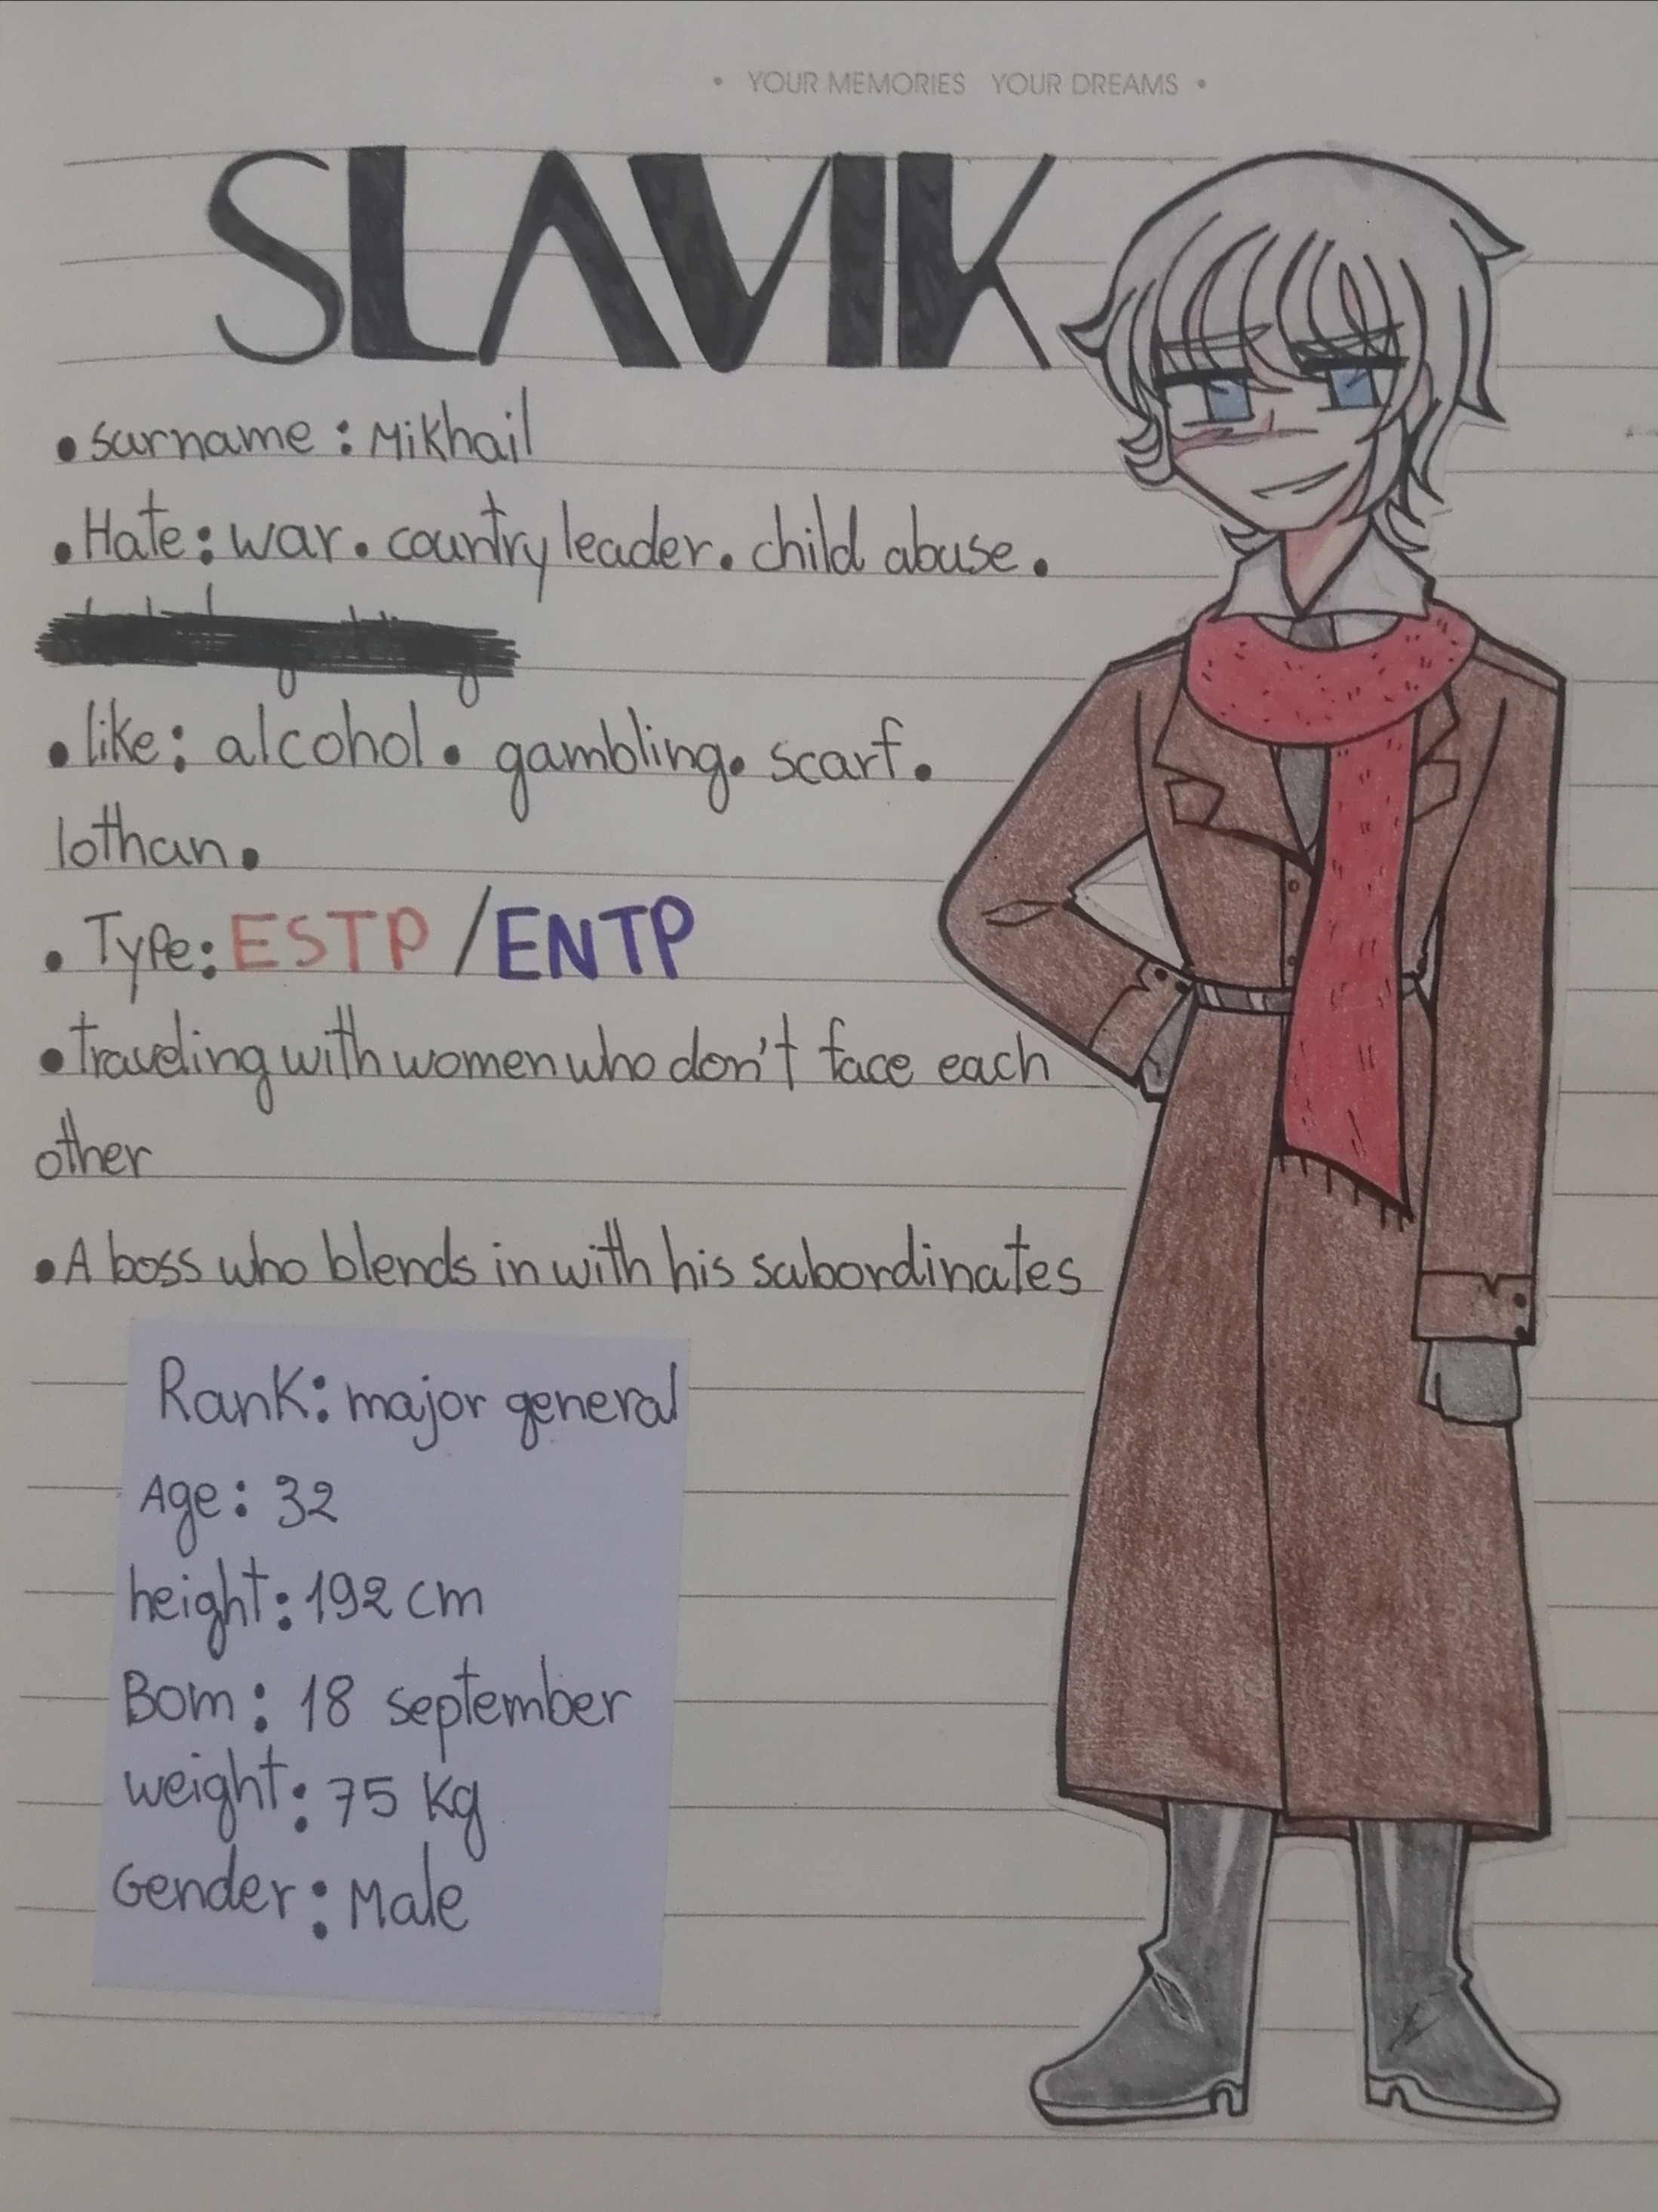 • YOUR MEMORIES YOUR DREAMS •
SLAVIK
• surname : Mikhail
• Hate : war . country leader . child abuse .
• like : alcohol . gambling . scarf .
lothan .
• Type : ESTP / ENTP
• traveling with women who don't face each
other
• A boss who blends in with his subordinates
Rank : major general
Age : 32
height : 192 cm
Born : 18 september
weight : 75 kg
Gender : Male